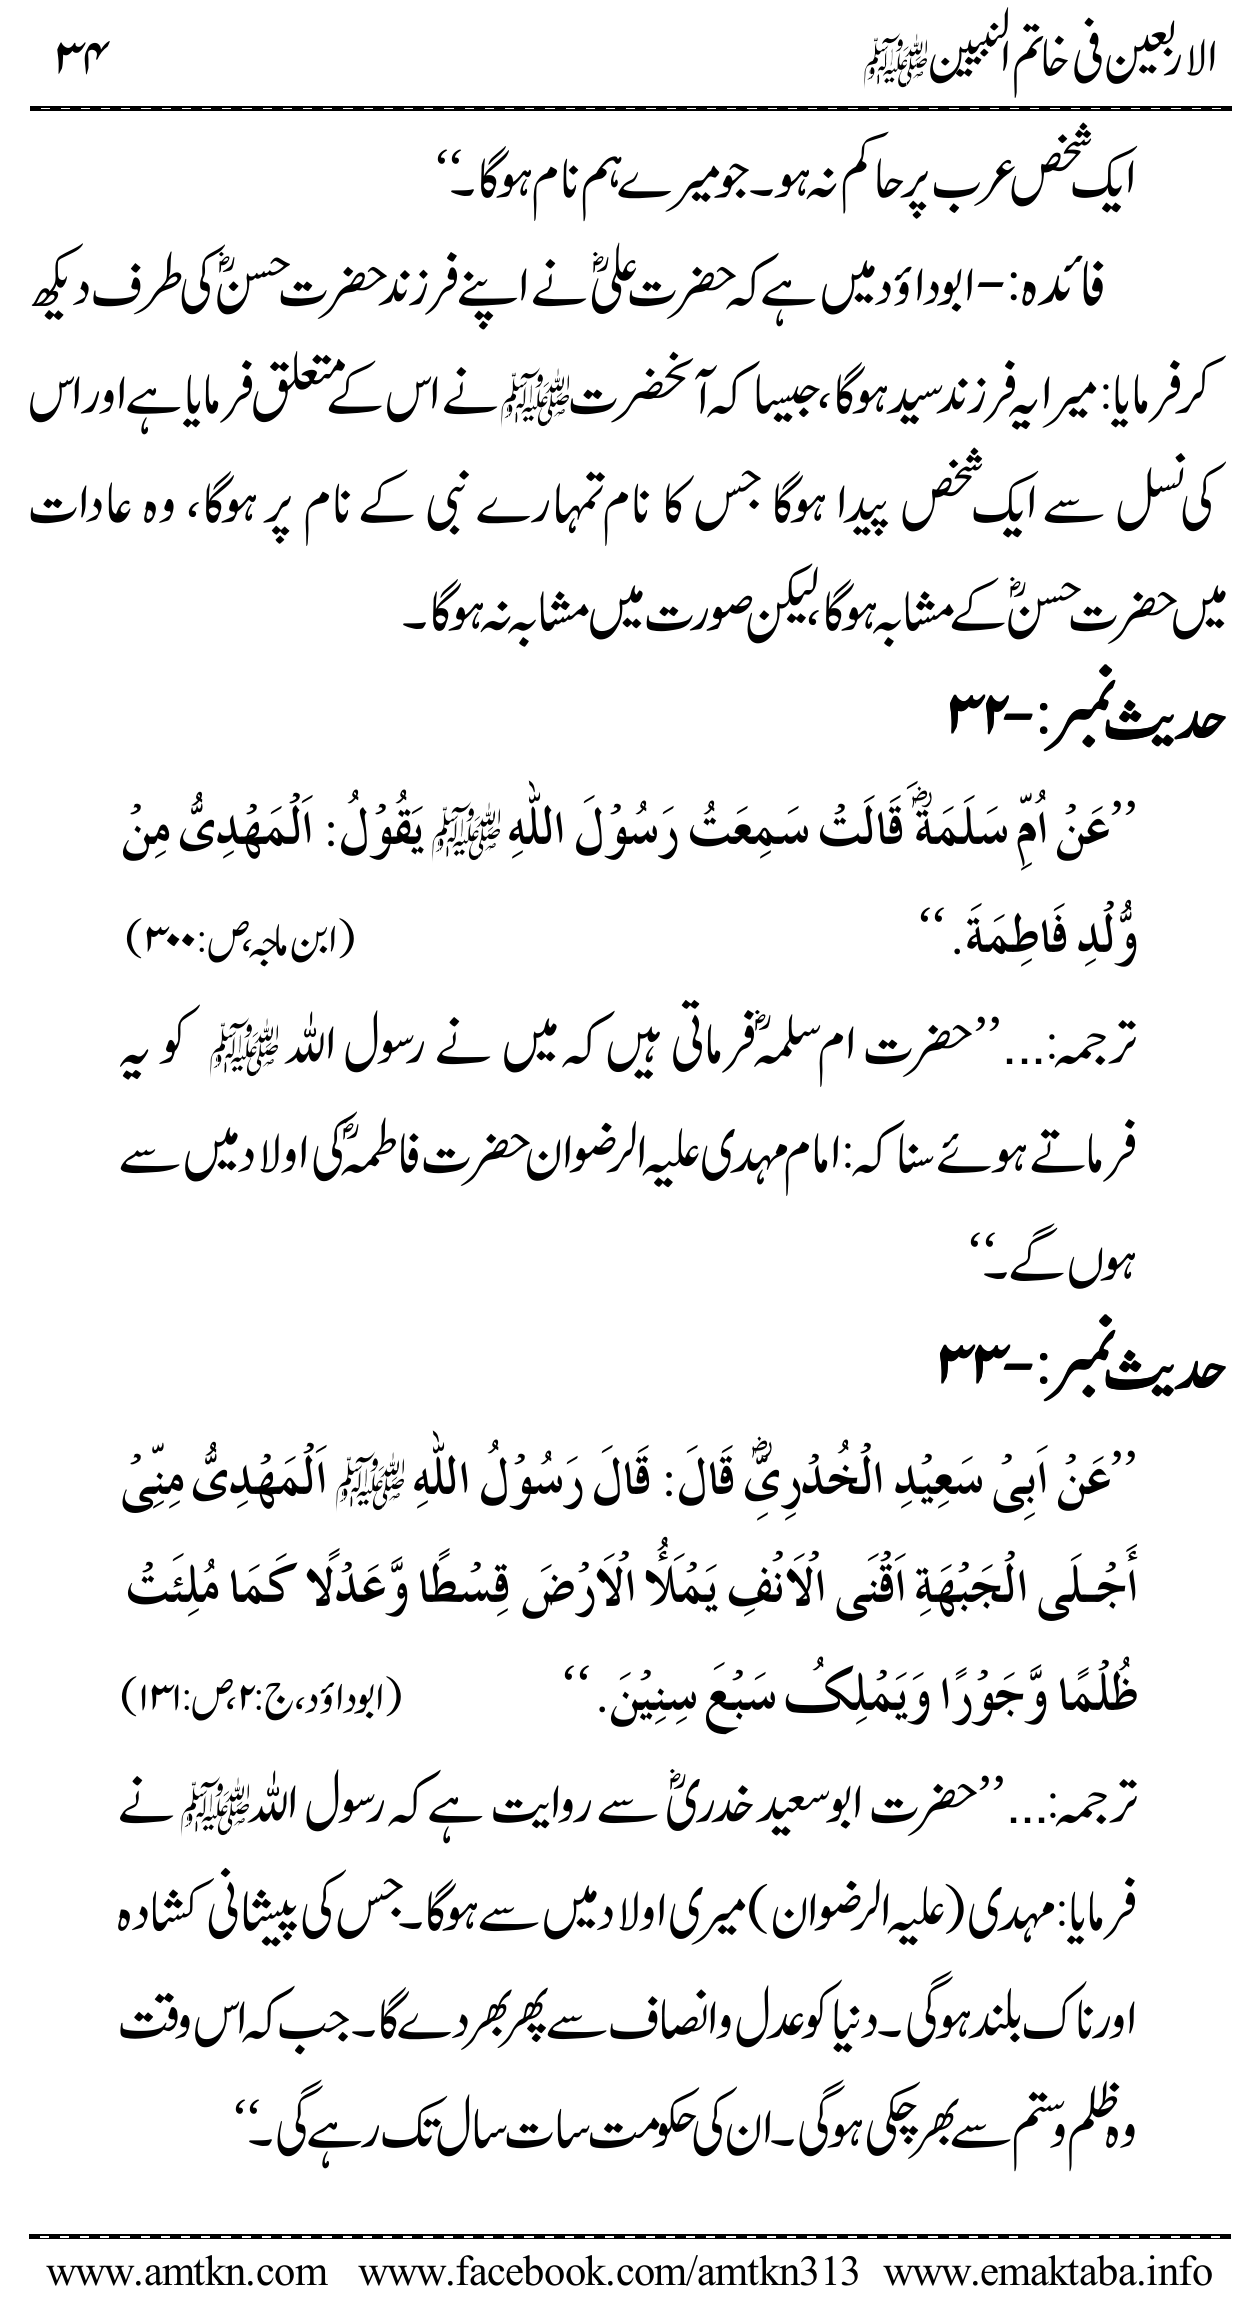 الاربعین فی خاتم النبیین ﷺ ۳۴
ایک شخص عرب پر حاکم نہ ہو۔ جو میرے ہم نام ہوگا۔‘‘
فائدہ:- ابوداؤد میں ہے کہ حضرت علیؓ نے اپنے فرزند حضرت حسنؓ کی طرف دیکھ
کر فرمایا: میرا یہ فرزند سید ہوگا، جیسا کہ آنحضرت ﷺ نے اس کے متعلق فرمایا ہے اور اس
کی نسل سے ایک شخص پیدا ہوگا جس کا نام تمہارے نبی کے نام پر ہوگا، وہ عادات
میں حضرت حسنؓ کے مشابہ ہوگا، لیکن صورت میں مشابہ نہ ہوگا۔
حدیث نمبر:-۳۲
’’عَنْ اُمِّ سَلَمَةَؓ قَالَتْ سَمِعَتُ رَسُوْلَ اللّٰهِ ﷺ يَقُوْلُ: اَلْمَهْدِىُّ مِنْ
وُّلْدِ فَاطِمَةَ.‘‘ (ابن ماجہ، ص:۳۰۰)
ترجمہ:...’’حضرت ام سلمہؓ فرماتی ہیں کہ میں نے رسول اللہ ﷺ کو یہ
فرماتے ہوئے سنا کہ: امام مہدی علیہ الرضوان حضرت فاطمہؓ کی اولاد میں سے
ہوں گے۔‘‘
حدیث نمبر:-۳۳
’’عَنْ اَبِىْ سَعِيْدِ الْخُدْرِىِّؓ قَالَ: قَالَ رَسُوْلُ اللّٰهِ ﷺ اَلْمَهْدِىُّ مِنِّىْ
أَجْلَى الْجَبْهَةِ اَقْنَى الْاَنْفِ يَمْلَأُ الْاَرْضَ قِسْطًا وَّعَدْلًا كَمَا مُلِئَتْ
ظُلْمًا وَّجَوْرًا وَيَمْلِكُ سَبْعَ سِنِيْنَ.‘‘ (ابوداؤد، ج:۲، ص:۱۳۱)
ترجمہ:...’’حضرت ابوسعید خدریؓ سے روایت ہے کہ رسول اللہ ﷺ نے
فرمایا: مہدی (علیہ الرضوان) میری اولاد میں سے ہوگا۔ جس کی پیشانی کشادہ
اور ناک بلند ہوگی۔ دنیا کو عدل و انصاف سے پھر بھر دے گا۔ جب کہ اس وقت
وہ ظلم و ستم سے بھر چکی ہوگی۔ ان کی حکومت سات سال تک رہے گی۔‘‘
www.amtkn.com www.facebook.com/amtkn313 www.emaktaba.info